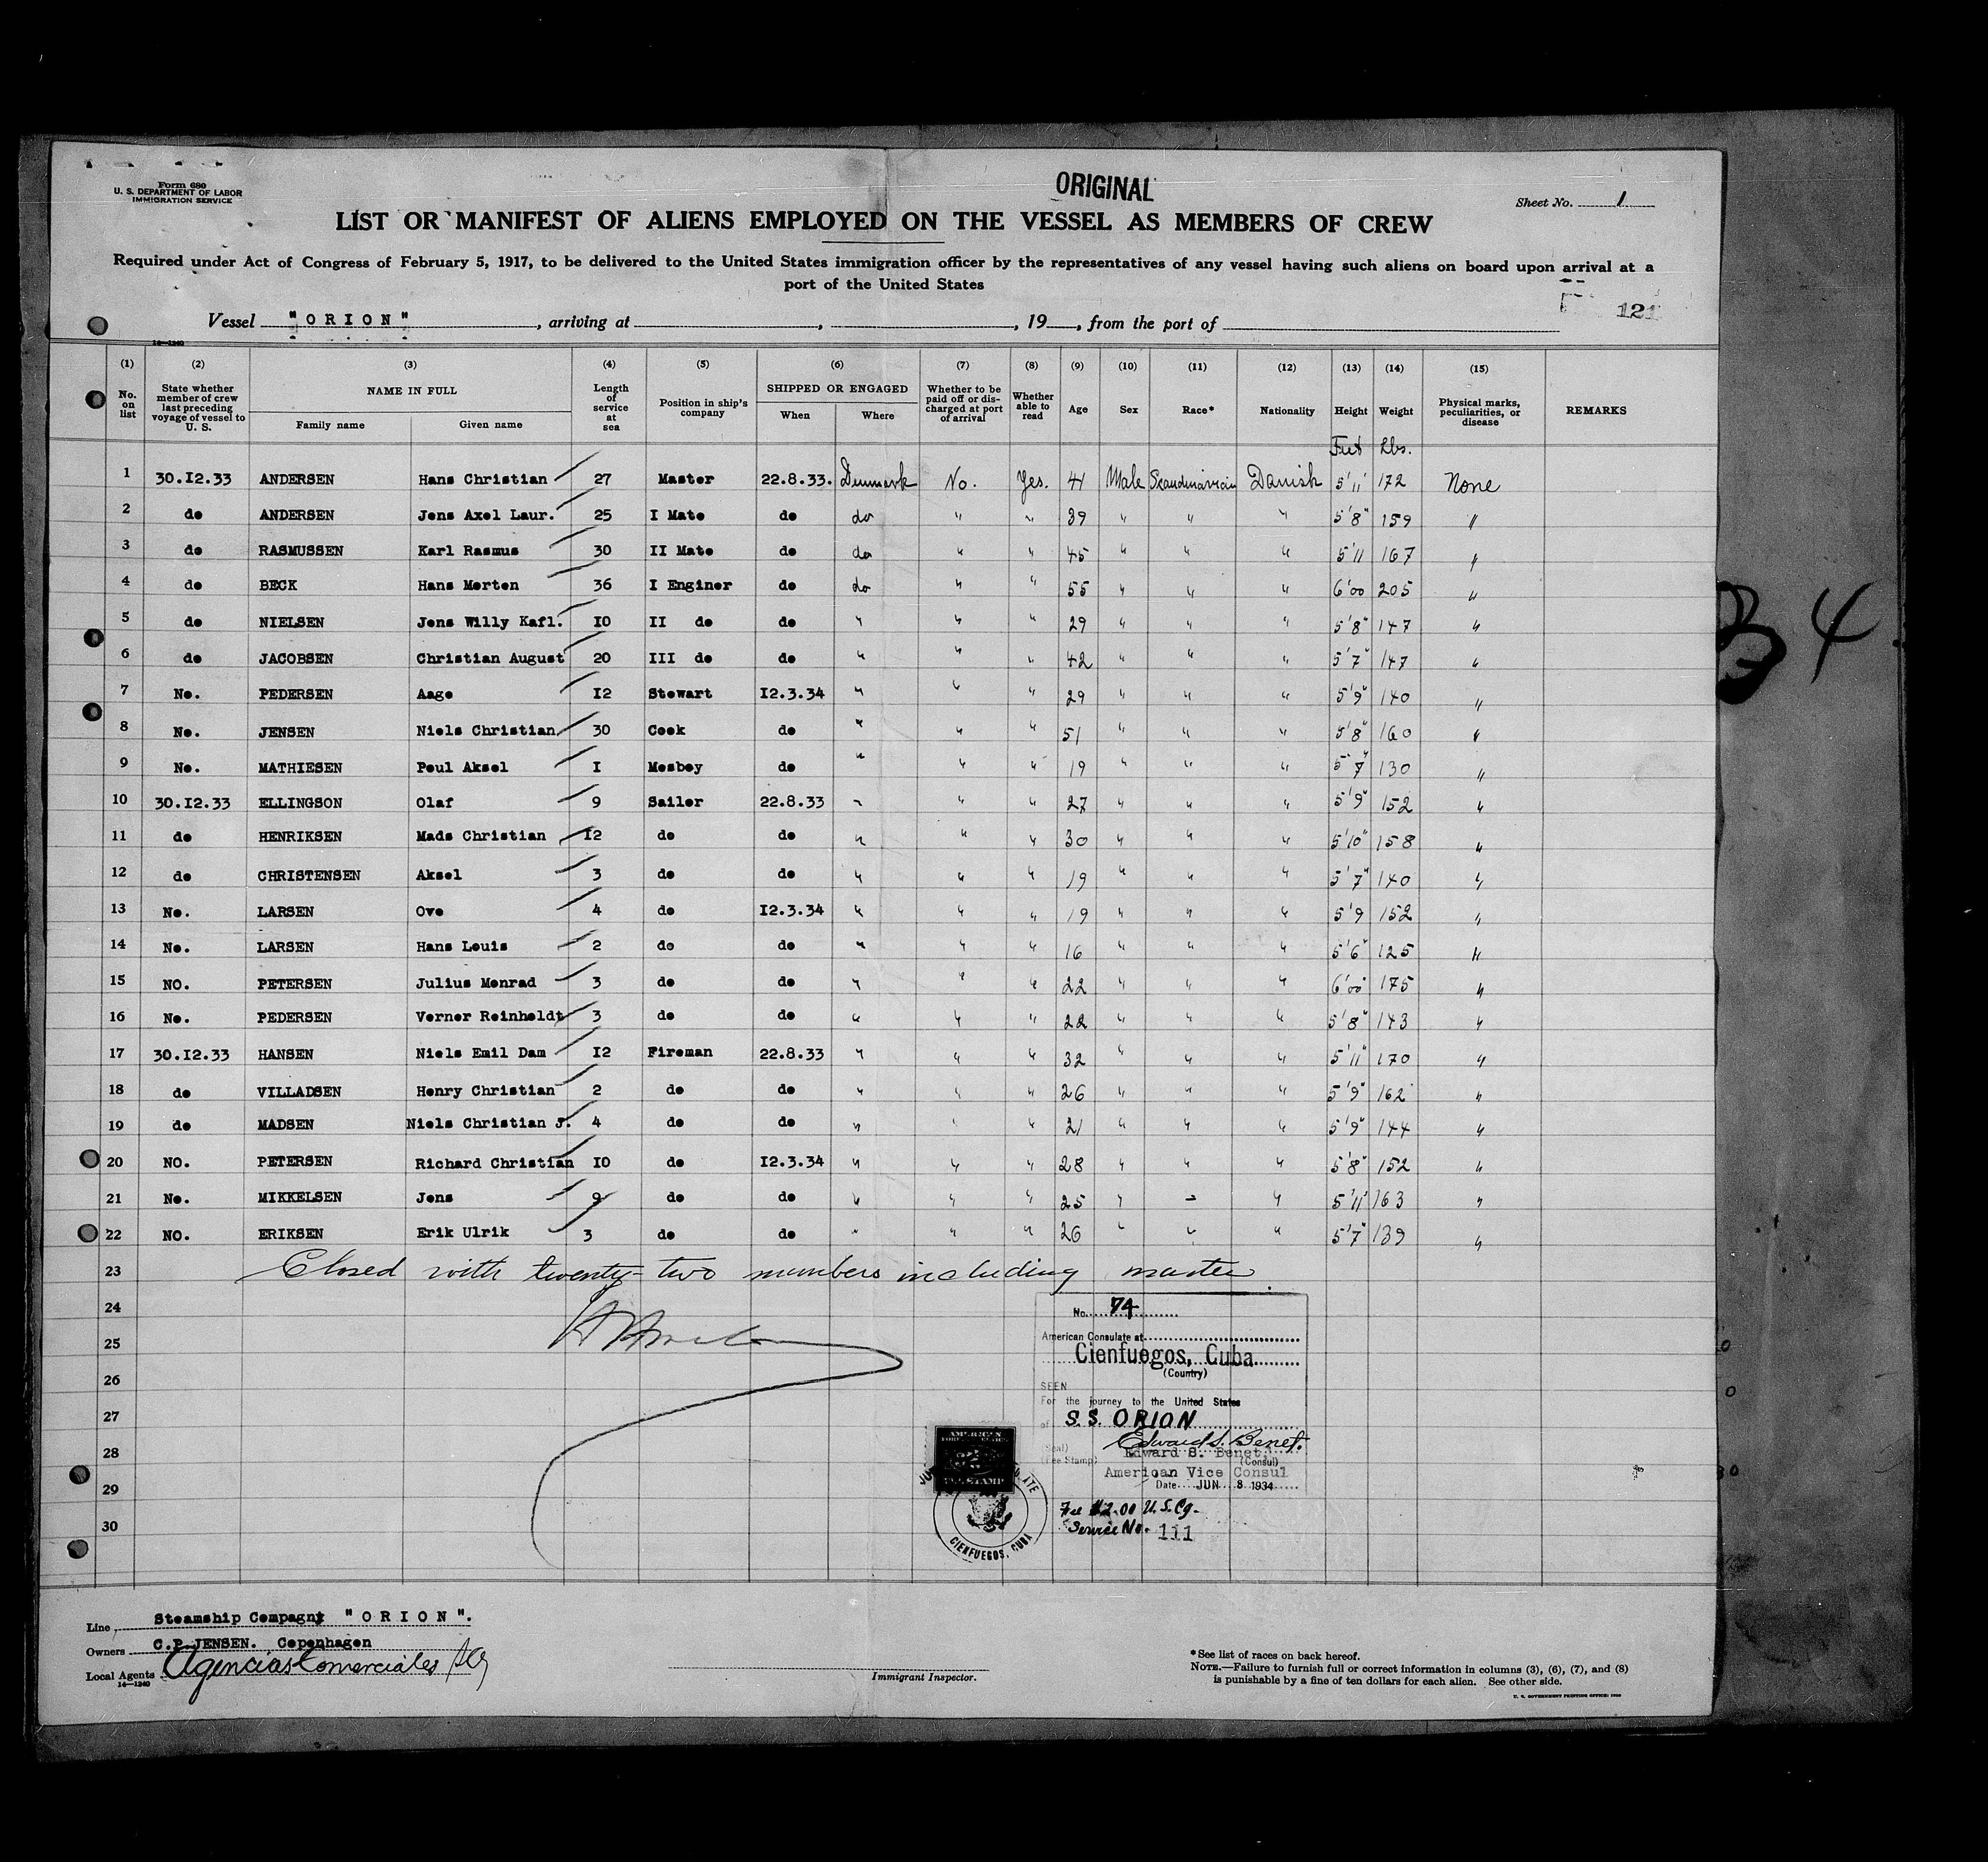 Form 680
U. S. DEPARTMENT OF LABOR
IMMIGRATION SERVICE
ORIGINAL
Sheet No. 1
LIST OR MANIFEST OF ALIENS EMPLOYED ON THE VESSEL AS MEMBERS OF CREW
Required under Act of Congress of February 5, 1917, to be delivered to the United States immigration officer by the representatives of any vessel having such aliens on board upon arrival at a
port of the United States
121
Vessel "ORION", arriving at , , 19 , from the port of
14—1240
(1) No. on list (2) State whether member of crew last preceding voyage of vessel to U. S. (3) NAME IN FULL Family name Given name (4) Length of service at sea (5) Position in ship's company (6) SHIPPED OR ENGAGED When Where (7) Whether to be paid off or discharged at port of arrival (8) Whether able to read (9) Age (10) Sex (11) Race* (12) Nationality (13) Height (14) Weight (15) Physical marks, peculiarities, or disease REMARKS
Feet Lbs.
1 30.I2.33 ANDERSEN Hans Christian 27 Master 22.8.33. Denmark No. Yes. 41 Male Scandinavian Danish 5'11' 172 None
2 do ANDERSEN Jens Axel Laur. 25 I Mate do do " " 39 " " " 5'8" 159 "
3 do RASMUSSEN Karl Rasmus 30 II Mate do do " " 45 " " " 5'11 167 "
4 do BECK Hans Morten 36 I Enginer do do " " 55 " " " 6'00 205 "
5 do NIELSEN Jens Willy Kafl. I0 II do do " " " 29 " " " 5'8" 147 "
6 do JACOBSEN Christian August 20 III do do " " " 42 " " " 5'7" 147 "
7 No. PEDERSEN Aage I2 Stewart I2.3.34 " " " 29 " " " 5'9" 140 "
8 No. JENSEN Niels Christian 30 Cook do " " " 51 " " " 5'8" 160 "
9 No. MATHIESEN Poul Aksel I Mesboy do " " " 19 " " " 5'7" 130 "
10 30.I2.33 ELLINGSON Olaf 9 Sailor 22.8.33 " " " 27 " " " 5'9" 152 "
11 do HENRIKSEN Mads Christian I2 do do " " " 30 " " " 5'10" 158 "
12 do CHRISTENSEN Aksel 3 do do " " " 19 " " " 5'7" 140 "
13 No. LARSEN Ove 4 do I2.3.34 " " " 19 " " " 5'9 152 "
14 No. LARSEN Hans Louis 2 do do " " " 16 " " " 5'6" 125 "
15 NO. PETERSEN Julius Monrad 3 do do " " " 22 " " " 6'00" 175 "
16 No. PEDERSEN Verner Reinholdt 3 do do " " " 22 " " " 5'8" 143 "
17 30.I2.33 HANSEN Niels Emil Dam I2 Fireman 22.8.33 " " " 32 " " " 5'11" 170 "
18 do VILLADSEN Henry Christian 2 do do " " " 26 " " " 5'9" 162 "
19 do MADSEN Niels Christian J. 4 do do " " " 21 " " " 5'9" 144 "
20 NO. PETERSEN Richard Christian I0 do I2.3.34 " " " 28 " " " 5'8" 152 "
21 No. MIKKELSEN Jens 9 do do " " " 25 " " " 5'11" 163 "
22 NO. ERIKSEN Erik Ulrik 3 do do " " " 26 " " " 5'7" 139 "
23 Closed with twenty-two members including master.
24
25
26
27
28
29
30
No. 74
American Consulate at
Cienfuegos, Cuba
(Country)
SEEN
For the journey to the United States
of S.S. ORION
Edward S. Benet.
(Seal) Edward S. Benet,
(Fee Stamp) (Consul)
American Vice Consul
Date JUN 8 1934
Fee $2.00 U.S.Cy.
Service No. 111
AMERICAN
FEE STAMP
CIENFUEGOS, CUBA
34
Line Steamship Compagny "ORION".
Owners C.P.JENSEN. Copenhagen
Local Agents Agencias Comerciales
14—1240
Immigrant Inspector.
*See list of races on back hereof.
NOTE.—Failure to furnish full or correct information in columns (3), (6), (7), and (8)
is punishable by a fine of ten dollars for each alien. See other side.